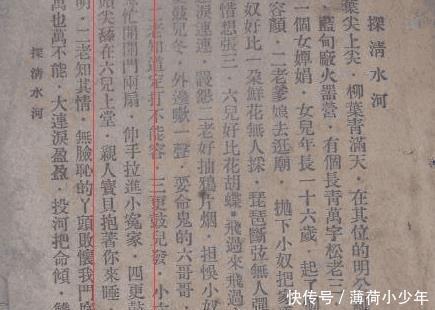 探清水河
葉尖上尖．柳葉青滿天．在其位的明公
藍甸廠火器營．有個長青萬字松老三
一個女嬋娟．女兒年長一十六歲．起了
容顏．二老爹娘去逛廟．拋下小奴把家
小奴好比一朶鮮花無人採．琵琶斷弦無人彈
惜想張三．六兒好比花胡蝶．飛過來飛過
淚連連．最怨二老好抽鴉片烟．担悞小奴
鼓兒冬．外邊嗽一聲．要命鬼的六哥哥
老知道定打不能容．三更鼓兒發．小
忙開開門兩扇．伸手拉進小冤家．四更鼓
頭尖舔在六兒上堂．親人寶貝抱著你來睡
明．二老知其情．無臉恥的丫頭敗懷我門
萬也萬不能．大連淚盈盈．投河把命傾
探清水河
快传号 / 薄荷小少年